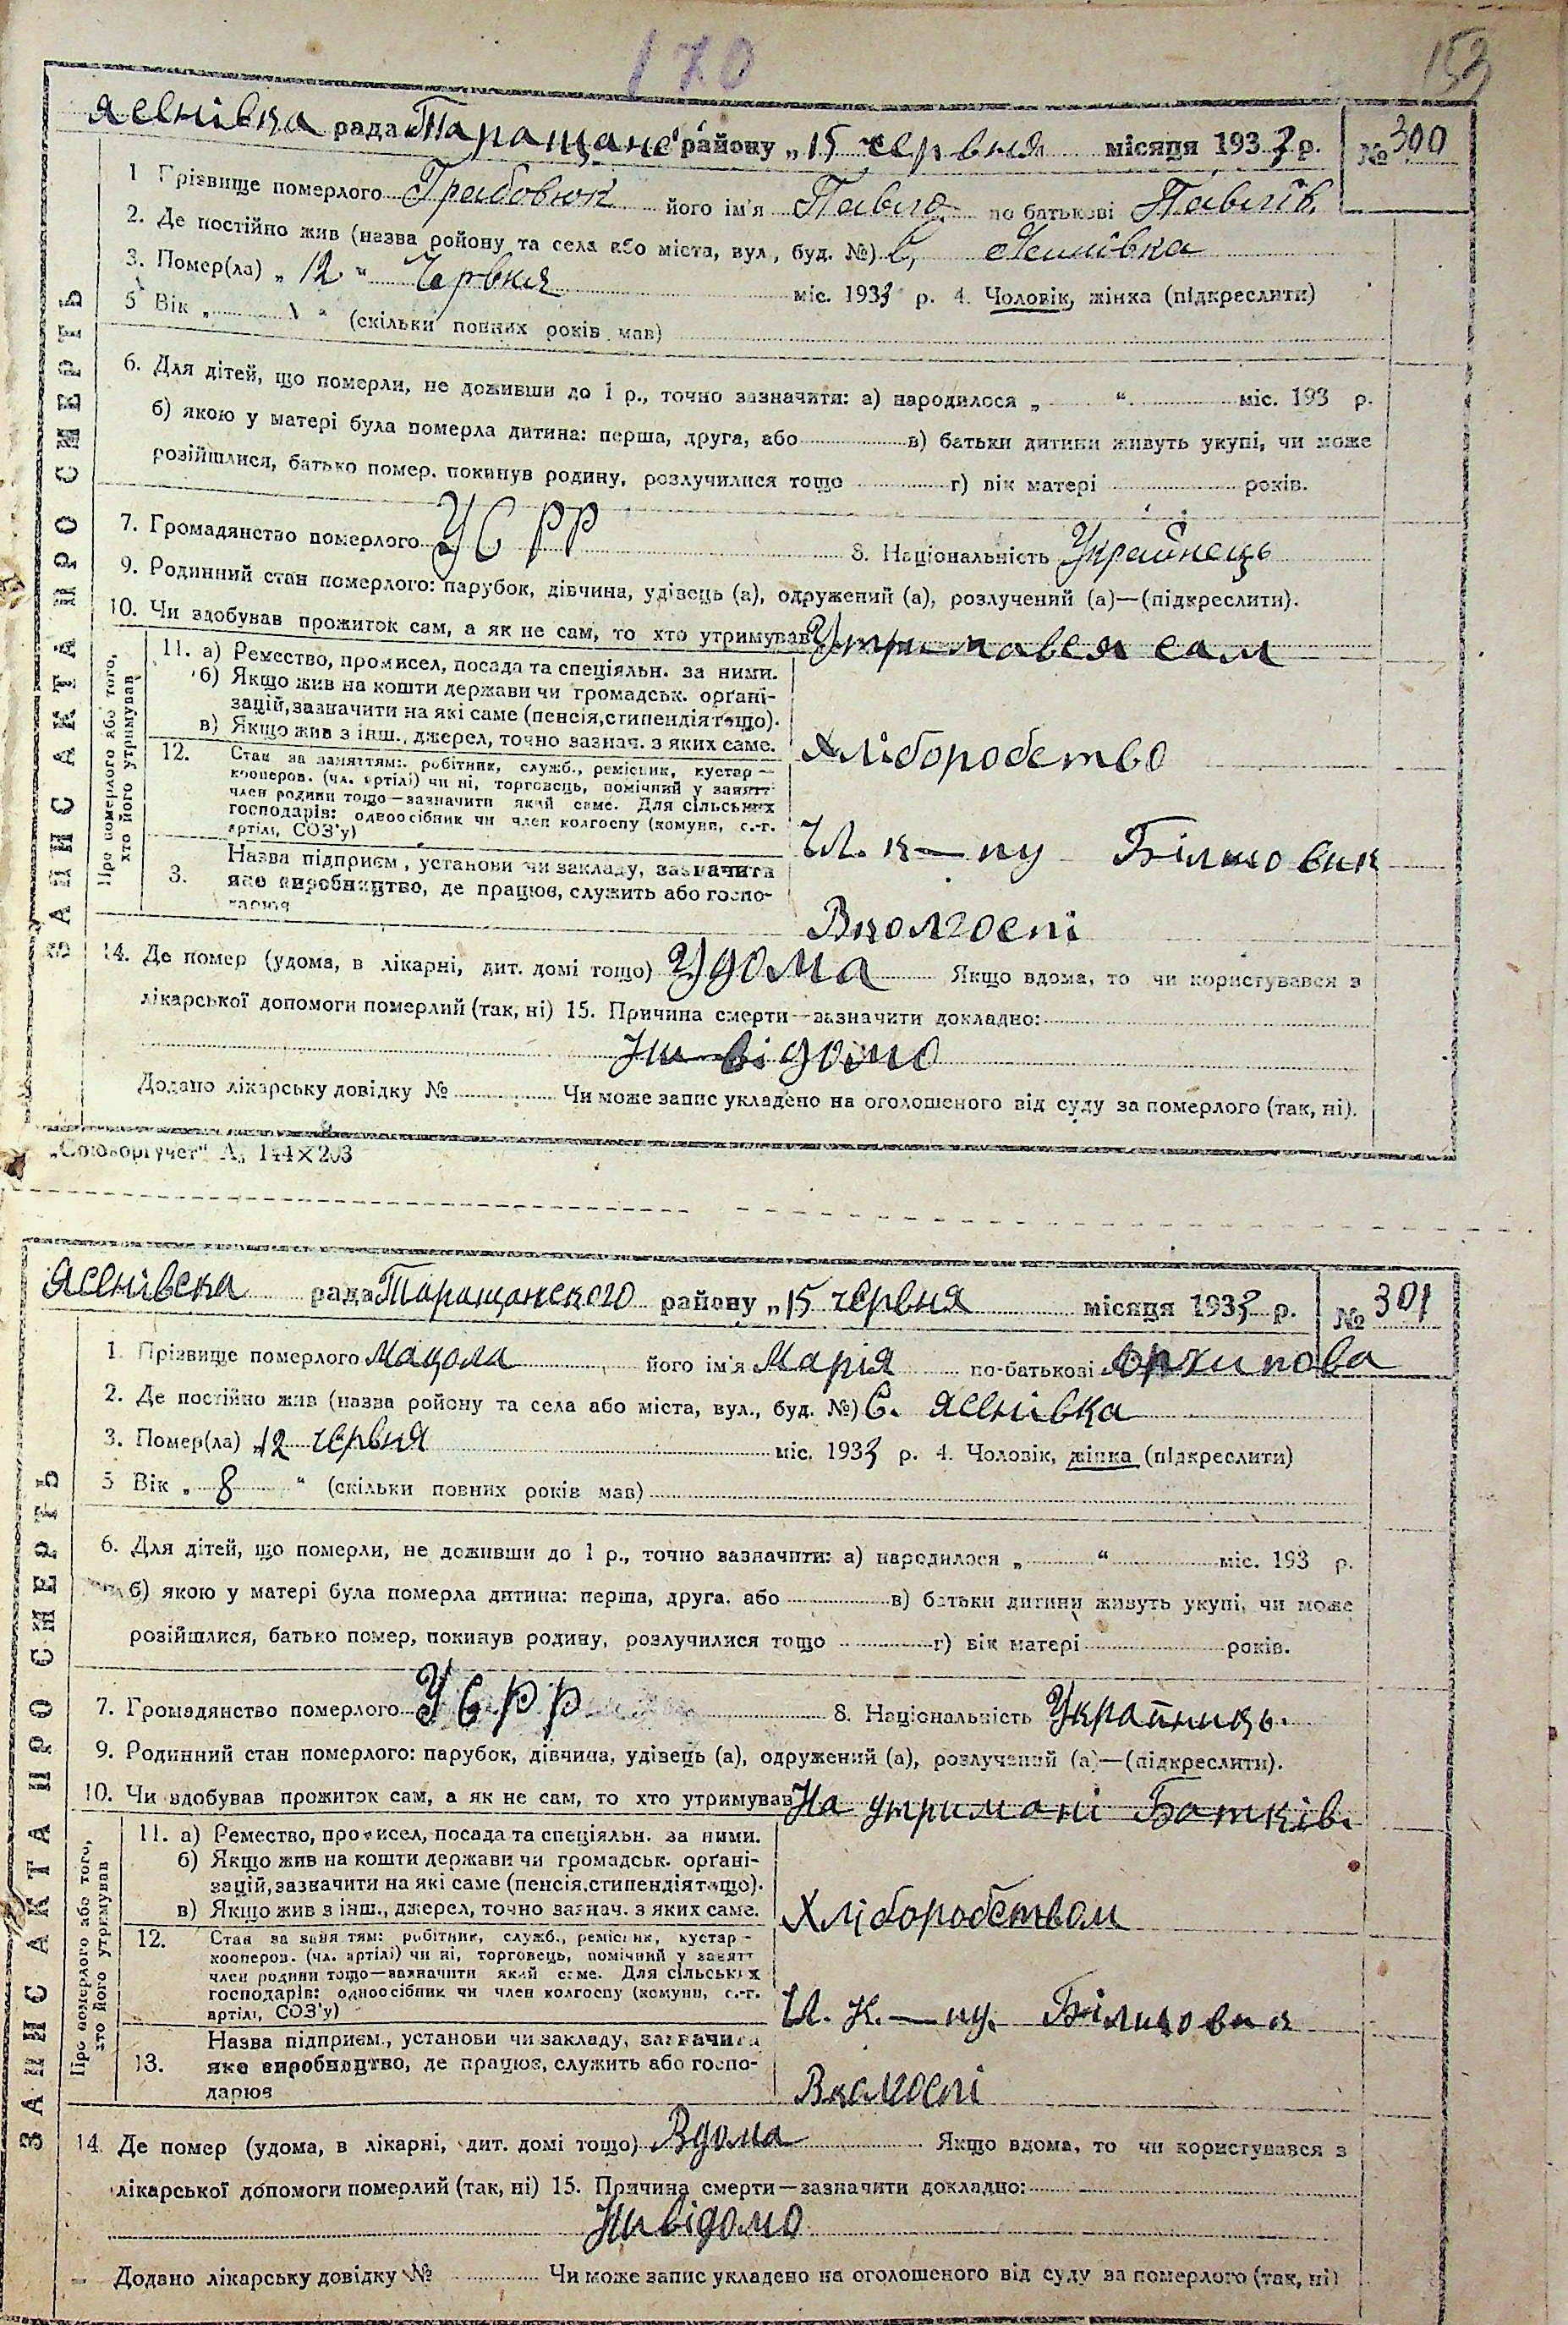 170
153
Яснівка рада Таращанс району „15 червня місяця 1933 р. № 300
1 Прізвище померлого Грабовюк його ім'я Павло по батькові Павлів
2. Де постійно жив (назва ройону та села або міста, вул, буд. №) С, Яснівка
3. Помер(ла) „ 12 “ Червня міс. 1933 р. 4. Чоловік, жінка (підкреслити)
5 Вік „ “ (скільки повних років мав)
6. Для дітей, що померли, не доживши до 1 р., точно зазначити: а) народилося „ “ міс. 193 р.
б) якою у матері була померла дитина: перша, друга, або в) батьки дитини живуть укупі, чи може
розійшлися, батько помер, покинув родину, розлучилися тощо г) вік матері років.
7. Громадянство померлого УСРР 8. Національність Українець
9. Родинний стан померлого: парубок, дівчина, удівець (а), одружений (а), розлучений (а)—(підкреслити).
10. Чи здобував прожиток сам, а як не сам, то хто утримував Утримався сам
ЗАПИС АКТА ПРО СМЕРТЬ
Про померлого або того, хто його утримував
11. а) Ремество, промисел, посада та спеціяльн. за ними.
б) Якщо жив на кошти держави чи громадськ. органі-
зацій, зазначити на які саме (пенсія, стипендія тощо).
в) Якщо жив з інш., джерел, точно зазнач. з яких саме. Хліборобство
12. Стан за заняттям: робітник, служб., ремісник, кустар —
кооперов. (чл. артілі) чи ні, торговець, помічний у занятт
член родини тощо—зазначити який саме. Для сільських
господарів: одноосібник чи член колгоспу (комуни, с.-г.
артілі, СОЗ'у) Чл. к—пу Більшовик
3. Назва підприєм, установи чи закладу, зазначити
яке виробництво, де працює, служить або госпо-
дарює Вколгоспі
14. Де помер (удома, в лікарні, дит. домі тощо) Удома Якщо вдома, то чи користувався з
лікарської допомоги померлий (так, ні) 15. Причина смерти—зазначити докладно:
Не відомо
Додано лікарську довідку № Чи може запис укладено на оголошеного від суду за померлого (так, ні).
„Союзоргучет“ А₅ 144×203
Яснівска рада Таращанского району „15 червня місяця 1933 р. № 301
1. Прізвище померлого Мацола його ім'я Марія по-батькові Архипова
2. Де постійно жив (назва ройону та села або міста, вул., буд. №) С. Яснівка
3. Помер(ла) „12 червня міс. 1933 р. 4. Чоловік, жінка (підкреслити)
5 Вік „ 8 “ (скільки повних років мав)
6. Для дітей, що померли, не доживши до 1 р., точно зазначити: а) народилося „ “ міс. 193 р.
б) якою у матері була померла дитина: перша, друга. або в) батьки дитини живуть укупі, чи може
розійшлися, батько помер, покинув родину, розлучилися тощо г) вік матері років.
7. Громадянство померлого УСРР 8. Національність Українець.
9. Родинний стан померлого: парубок, дівчина, удівець (а), одружений (а), розлучений (а)—(підкреслити).
10. Чи здобував прожиток сам, а як не сам, то хто утримував На утримані Батків.
ЗАПИС АКТА ПРО СМЕРТЬ
Про померлого або того, хто його утримував
11. а) Ремество, промисел, посада та спеціяльн. за ними.
б) Якщо жив на кошти держави чи громадськ. органі-
зацій, зазначити на які саме (пенсія, стипендія тощо).
в) Якщо жив з інш., джерел, точно зазнач. з яких саме. Хліборобством
12. Стан за заняттям: робітник, служб., ремісник, кустар —
кооперов. (чл. артілі) чи ні, торговець, помічний у занятт
член родини тощо—зазначити який саме. Для сільських
господарів: одноосібник чи член колгоспу (комуни, с.-г.
артілі, СОЗ'у) Чл. к.—пу. Більшовик
13. Назва підприєм., установи чи закладу, зазначити
яке виробництво, де працює, служить або госпо-
дарює Вколгоспі
14. Де помер (удома, в лікарні, дит. домі тощо) Вдома Якщо вдома, то чи користувався з
лікарської допомоги померлий (так, ні) 15. Причина смерти—зазначити докладно:
Не відомо
Додано лікарську довідку № Чи може запис укладено на оголошеного від суду за померлого (так, ні)